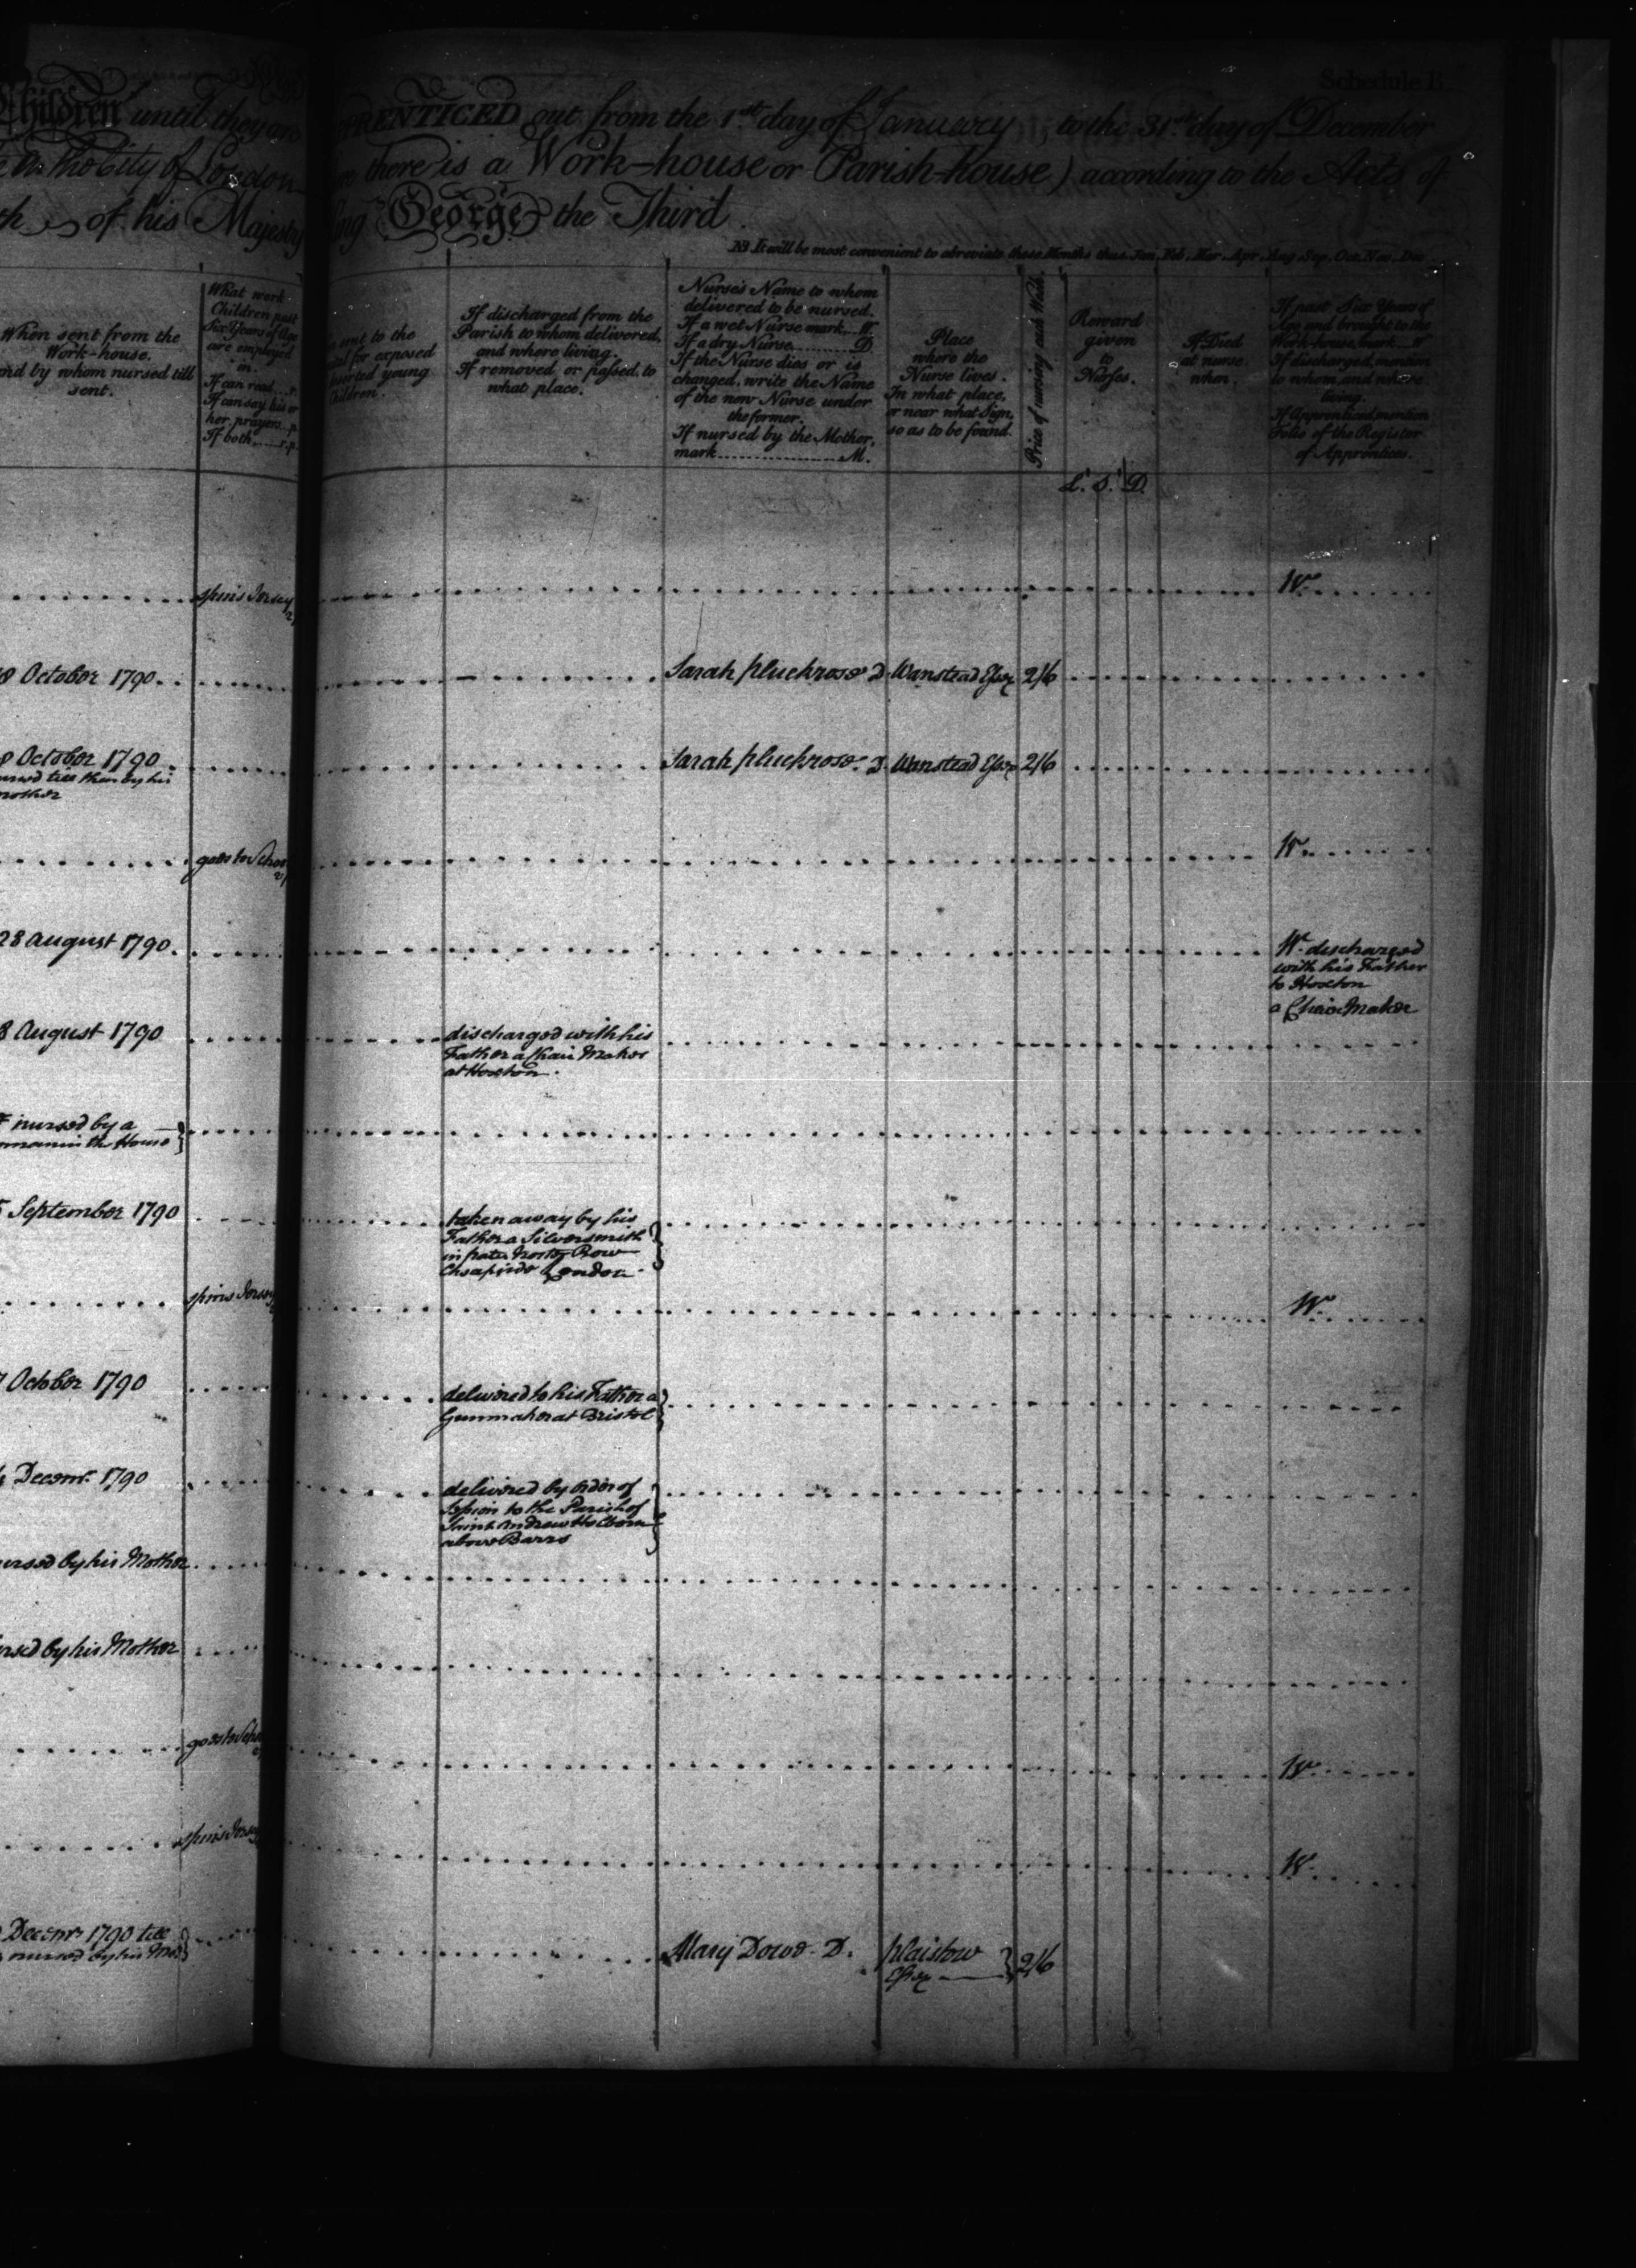 Schedule B.
Children until they are
PRENTICED out from the 1st. day of January, to the 31st. day of December
the City of London
there is a Work-house or Parish-house) according to the Acts of
of his Majesty
King George the Third
NB It will be most convenient to abreviate these Months thus. Jan. Feb. Mar. Apr. Aug. Sep. Oct. Nov. Dec.
When sent from the
Work-house.
and by whom nursed till
sent.
What work
Children past
Six Years of Age
are employed
in.
If can read....r.
If can say his or
her prayers..p.
If both.......r.p.
sent to the
for exposed
deserted young
Children.
If discharged from the
Parish to whom delivered,
and where living.
If removed or passed, to
what place.
Nurse's Name to whom
delivered to be nursed.
If a wet Nurse mark....W.
If a dry Nurse............D.
If the Nurse dies or is
changed, write the Name
of the new Nurse under
the former.
If nursed by the Mother,
mark..................M.
Place
where the
Nurse lives.
In what place,
or near what Sign,
so as to be found.
Price of nursing each Week.
Reward
given
to
Nurses.
If Died
at nurse
when.
If past Six Years of
Age and brought to the
Work-house, mark...W
If discharged, mention
to whom, and where
living.
If Apprenticed mention
Folio of the Register
of Apprentices.
L. S. D.
spins Jersey
W.
October 1790
Sarah pluckrose D Wanstead Essex 2/6
October 1790
nursed till then by his
mother
Sarah pluckrose D. Wanstead Essex 2/6
goes to School
W.
28 August 1790
W. discharged
with his Father
to Hoxton
a Chair Maker
August 1790
discharged with his
Father a Chair Maker
at Hoxton.
nursed by a
in the House
September 1790
taken away by his
Father a Silversmith
in pater noster Row
Cheapside London
spins Jersey
W.
October 1790
delivered to his Father a
Gunmaker at Bristol
Decemr. 1790
delivered by order of
Session to the Parish of
Saint Andrew Holborn
above Barrs
nursed by his Mother
nursed by his Mother
goes to School
W.
spins Jersey
W.
Decemr. 1790 till
nursed by his Mod
Mary Dowd D. plaistow 2/6
Essex